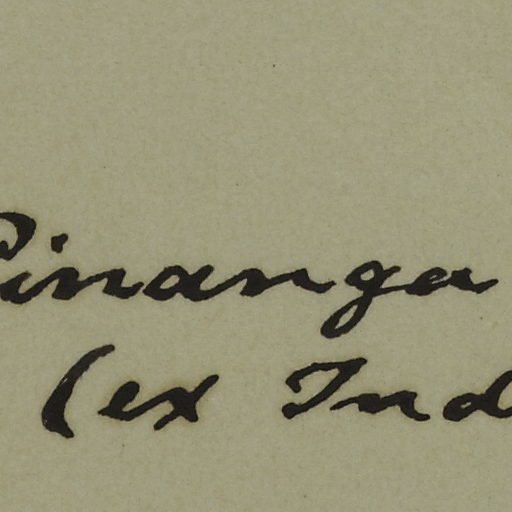 Pinanga
(ex Ind